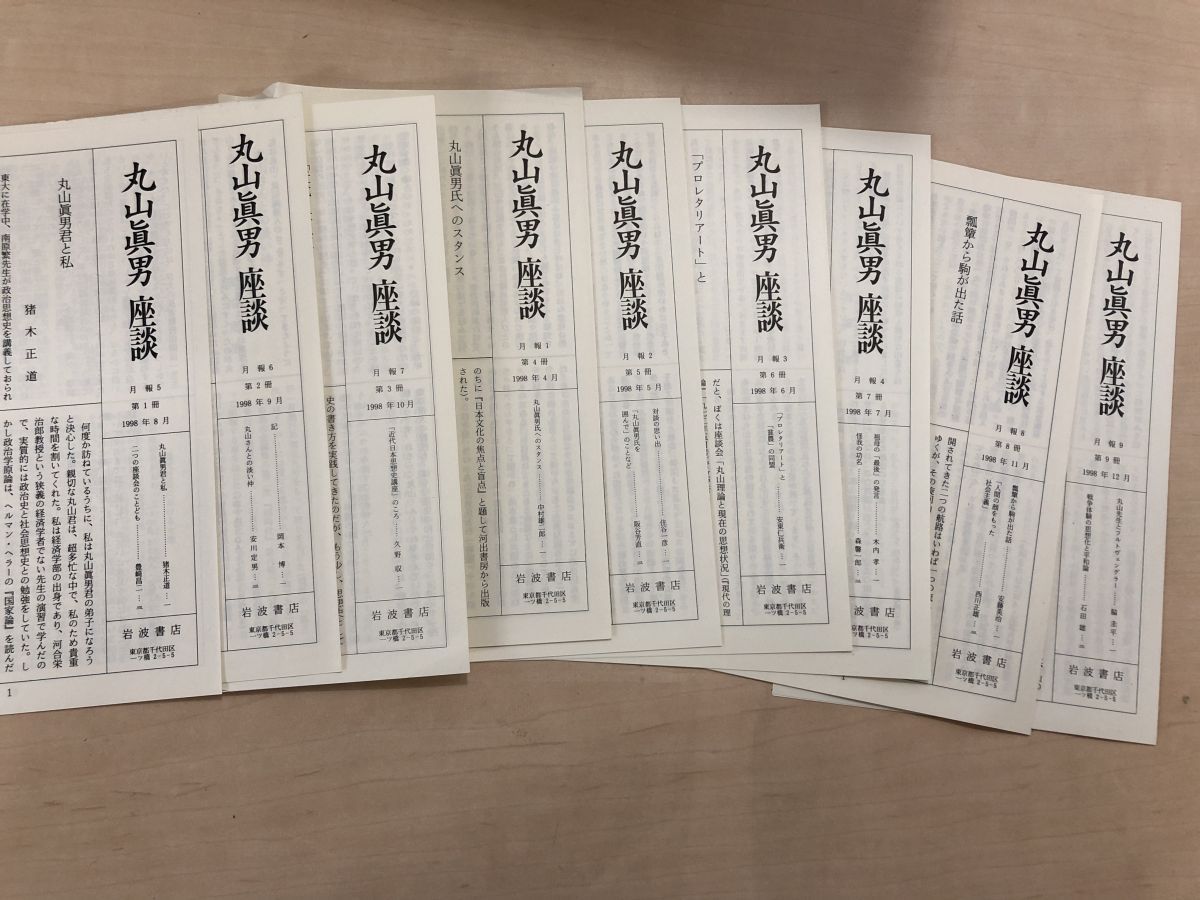 丸山眞男座談
月報5
第1冊
1998年8月
丸山眞男君と私……猪木正道…一
二つの座談会のことども……豊崎昌二…三
岩波書店
東京都千代田区
一ツ橋 2-5-5
丸山眞男君と私
猪木正道
東大に在学中、南原繁先生が政治思想史を講義しておられ
何度か訪ねているうちに、私は丸山眞男君の弟子になろう
と決心した。親切な丸山君は、超多忙な中で、私のため貴重
な時間を割いてくれた。私は経済学部の出身であり、河合栄
治郎教授という狭義の経済学者でない先生の演習で学んだの
で、実質的には政治史と社会思想史との勉強をしていた。し
かし政治学原論は、ヘルマン・ヘラーの『国家論』を読んだ
1
丸山眞男座談
月報6
第2冊
1998年9月
記……岡本博…一
丸山さんとの淡い仲……安川定男…三
岩波書店
東京都千代田区
一ツ橋 2-5-5
丸山眞男座談
月報7
第3冊
1998年10月
「近代日本思想史講座」のころ…久野収…一
岩波書店
東京都千代田区
一ツ橋 2-5-5
史の書き方を実践してきたのだが、もう少し、
丸山眞男座談
月報1
第4冊
1998年4月
丸山眞男氏へのスタンス……中村雄二郎…一
岩波書店
東京都千代田区
一ツ橋 2-5-5
丸山眞男氏へのスタンス
のちに『日本文化の焦点と盲点』と題して河出書房から出版
された)。
丸山眞男座談
月報2
第5冊
1998年5月
対談の思い出……住谷一彦…一
「丸山眞男氏を
囲んで」のことなど……阪谷芳直…三
岩波書店
東京都千代田区
一ツ橋 2-5-5
丸山眞男座談
月報3
第6冊
1998年6月
「プロレタリアート」と
「貧農」の同盟……安東仁兵衛…一
岩波書店
東京都千代田区
一ツ橋 2-5-5
「プロレタリアート」と
だと、ぼくは座談会「丸山理論と現在の思想状況」(『現代の理
丸山眞男座談
月報4
第7冊
1998年7月
祖母の「最後」の発言……木内孝…一
怪我の功名……森馨一郎…三
岩波書店
東京都千代田区
一ツ橋 2-5-5
丸山眞男座談
月報8
第8冊
1998年11月
瓢簞から駒が出た話……安藤英治…一
「人間の顔をもった
社会主義」……西川正雄…三
岩波書店
東京都千代田区
一ツ橋 2-5-5
瓢簞から駒が出た話
開されてきた二つの航路はいわば一つの
丸山眞男座談
月報9
第9冊
1998年12月
丸山先生とフルトヴェングラー……脇圭平…一
戦争体験の思想化と平和論……石田雄…三
岩波書店
東京都千代田区
一ツ橋 2-5-5